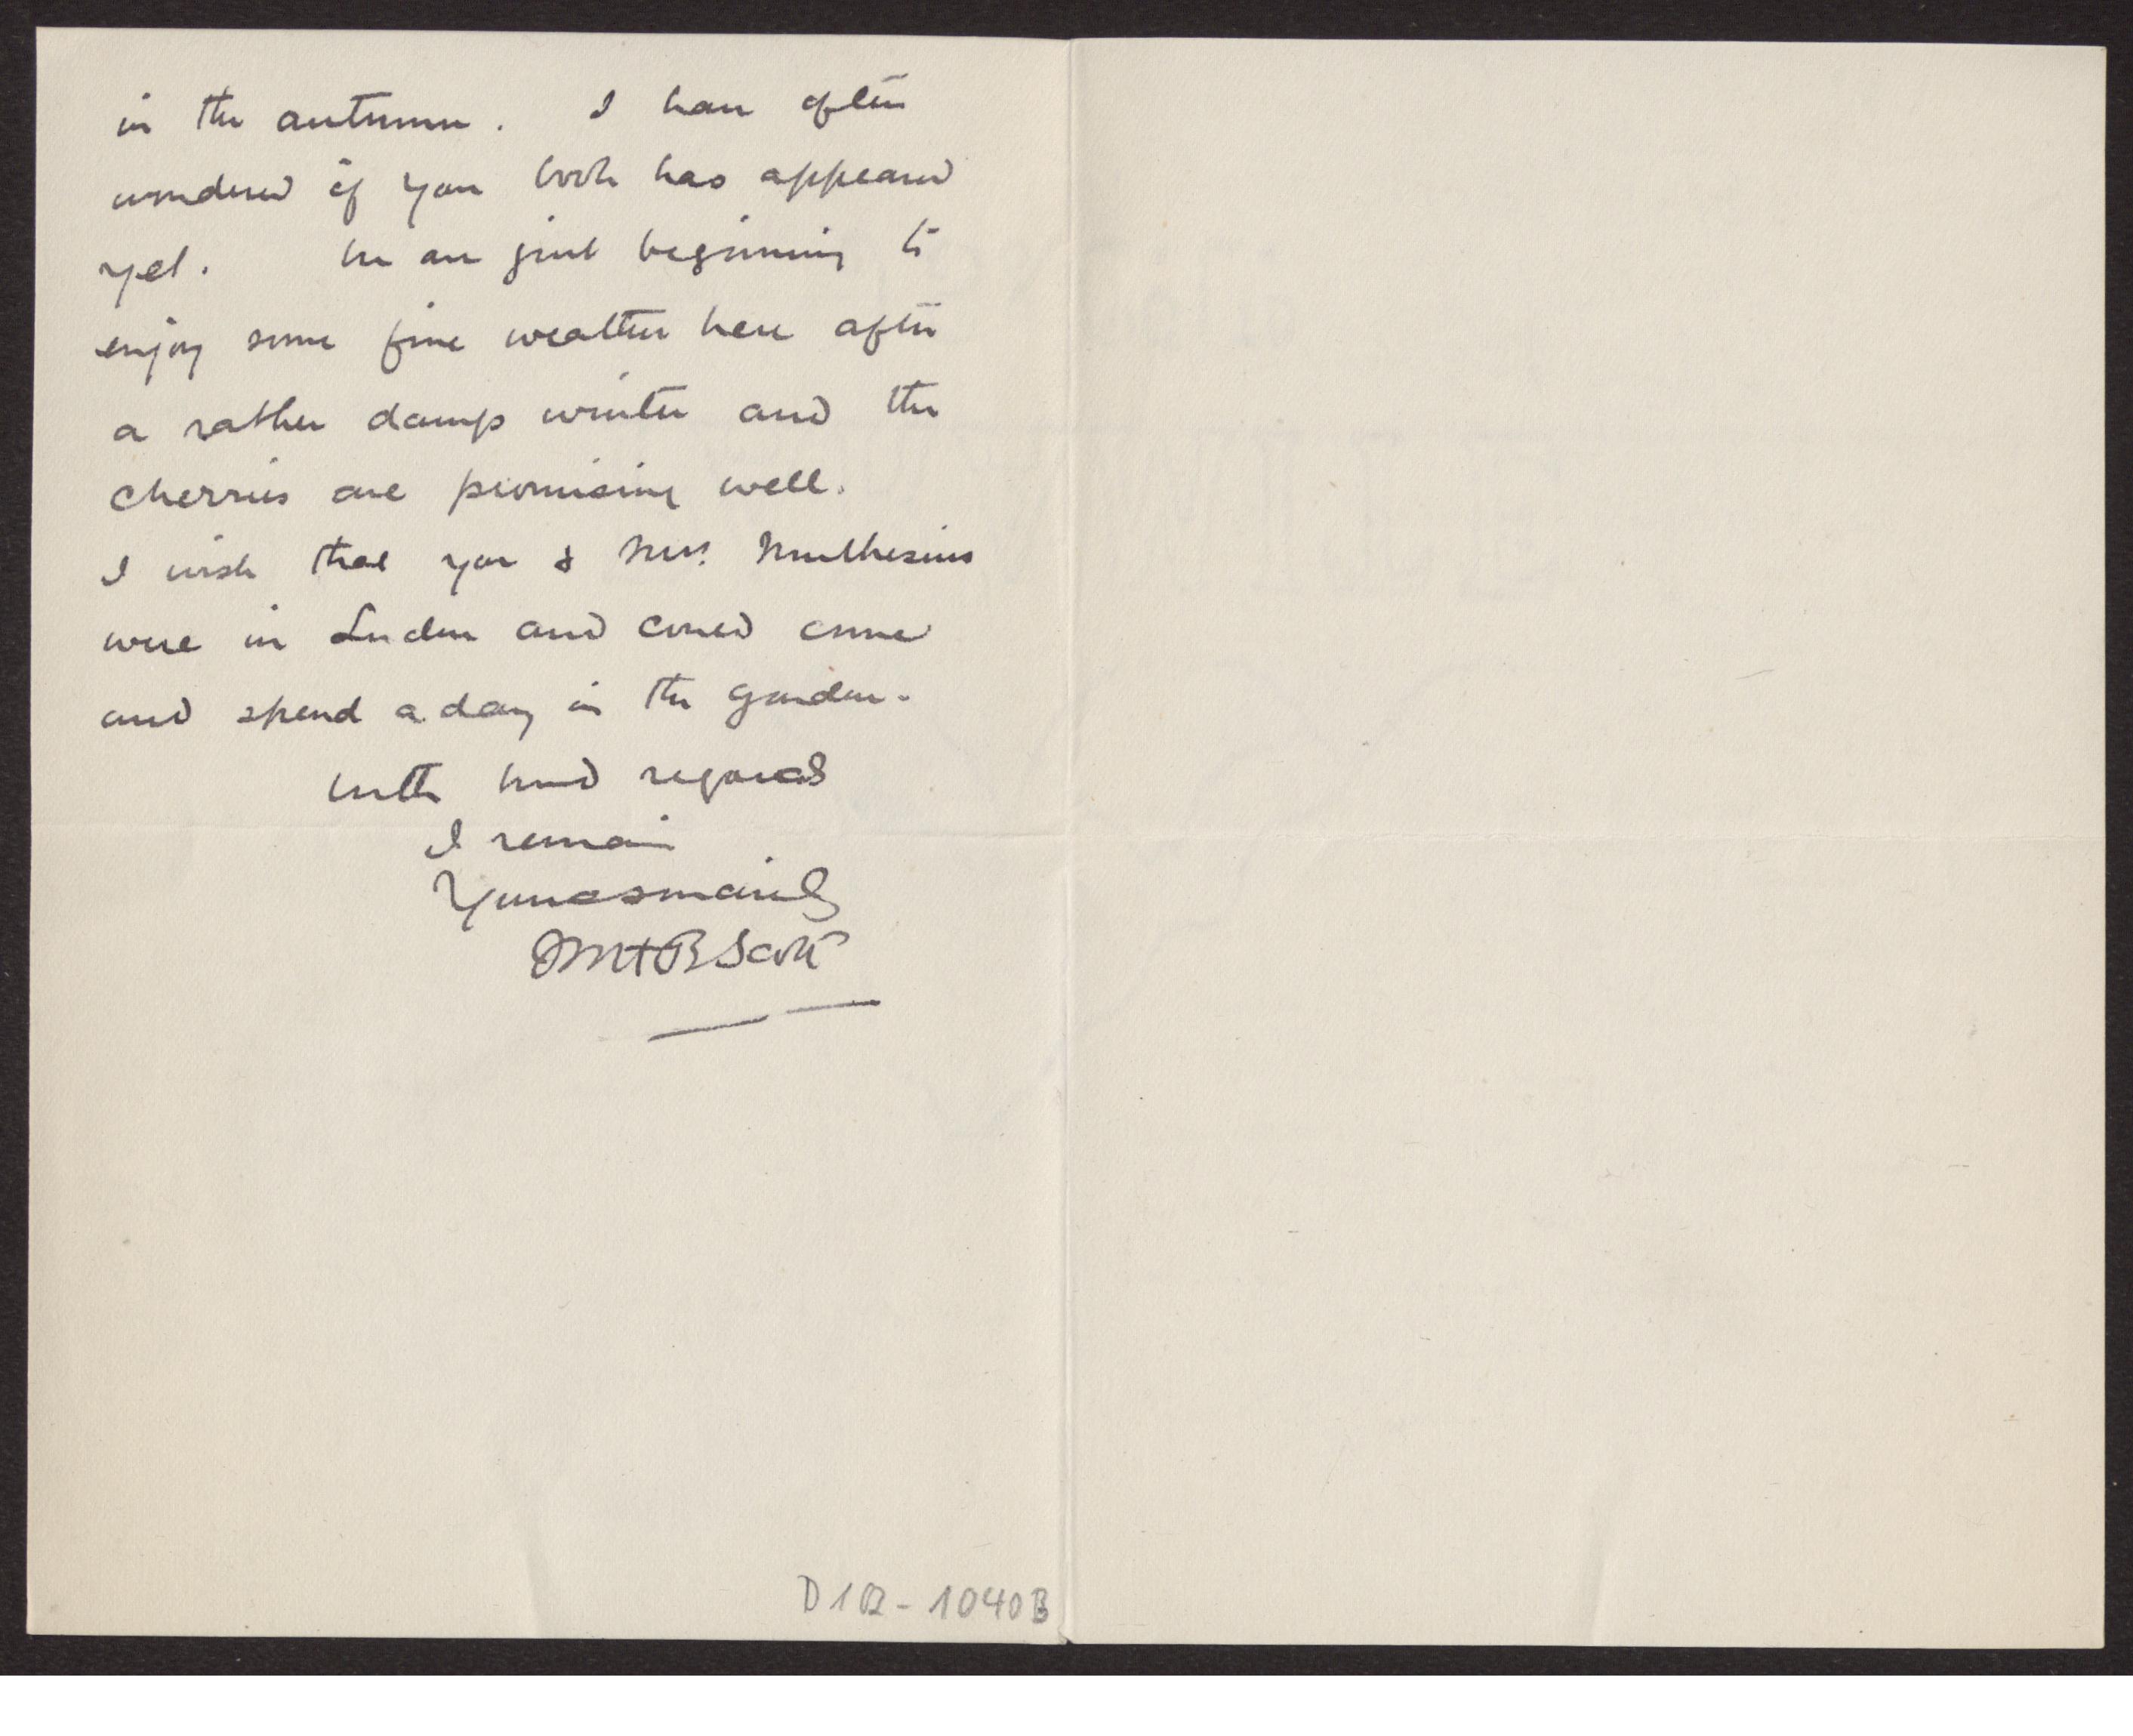 in the autumn. I have often
wondered if your book has appeared
yet. We are just beginning to
enjoy some fine weather here after
a rather damp winter and the
cherries are promising well.
I wish that you & Mrs. Muthesius
were in London and could come
and spend a day in the garden.
With kind regards
I remain
Yours sincerely
M H B Scott
D 102 - 1040 B